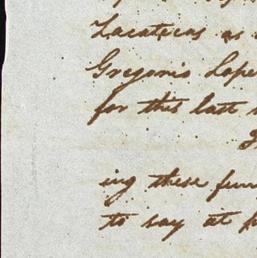 Zacatecas as
Gregorio Lope
for this last
ing these fun
to say at